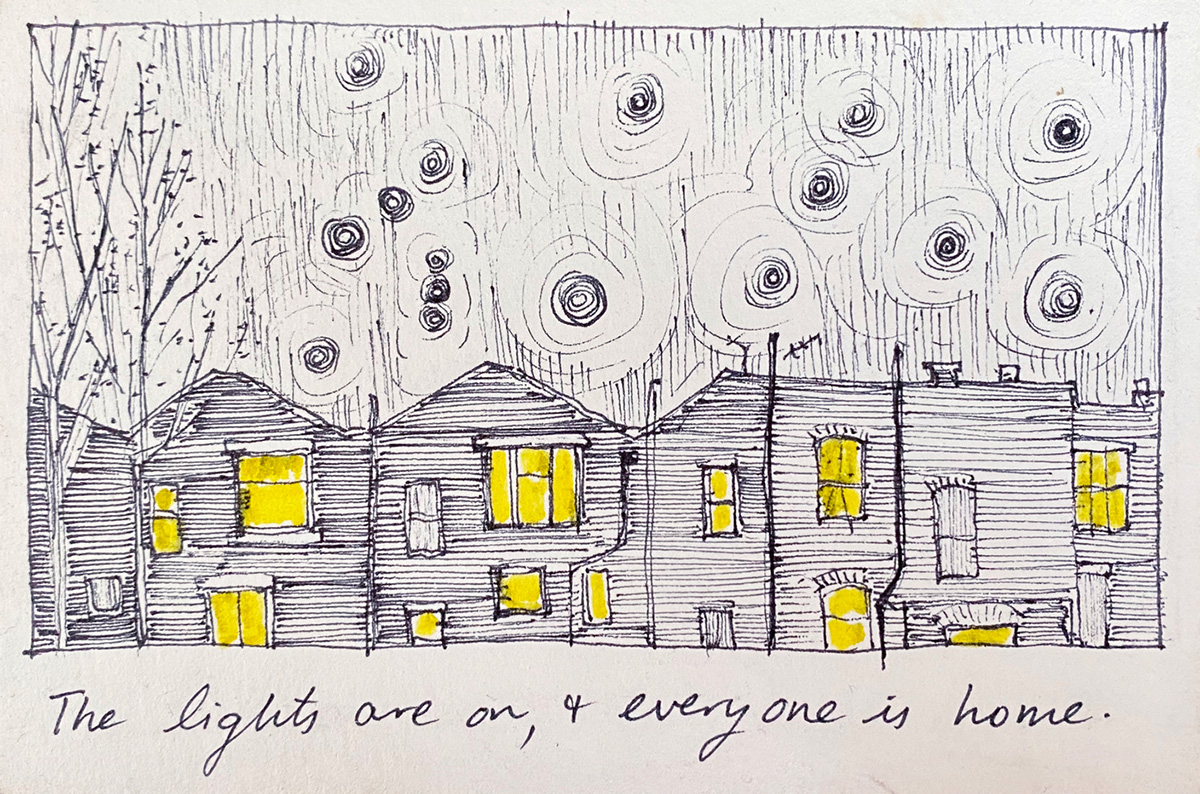 The lights are on, & everyone is home.